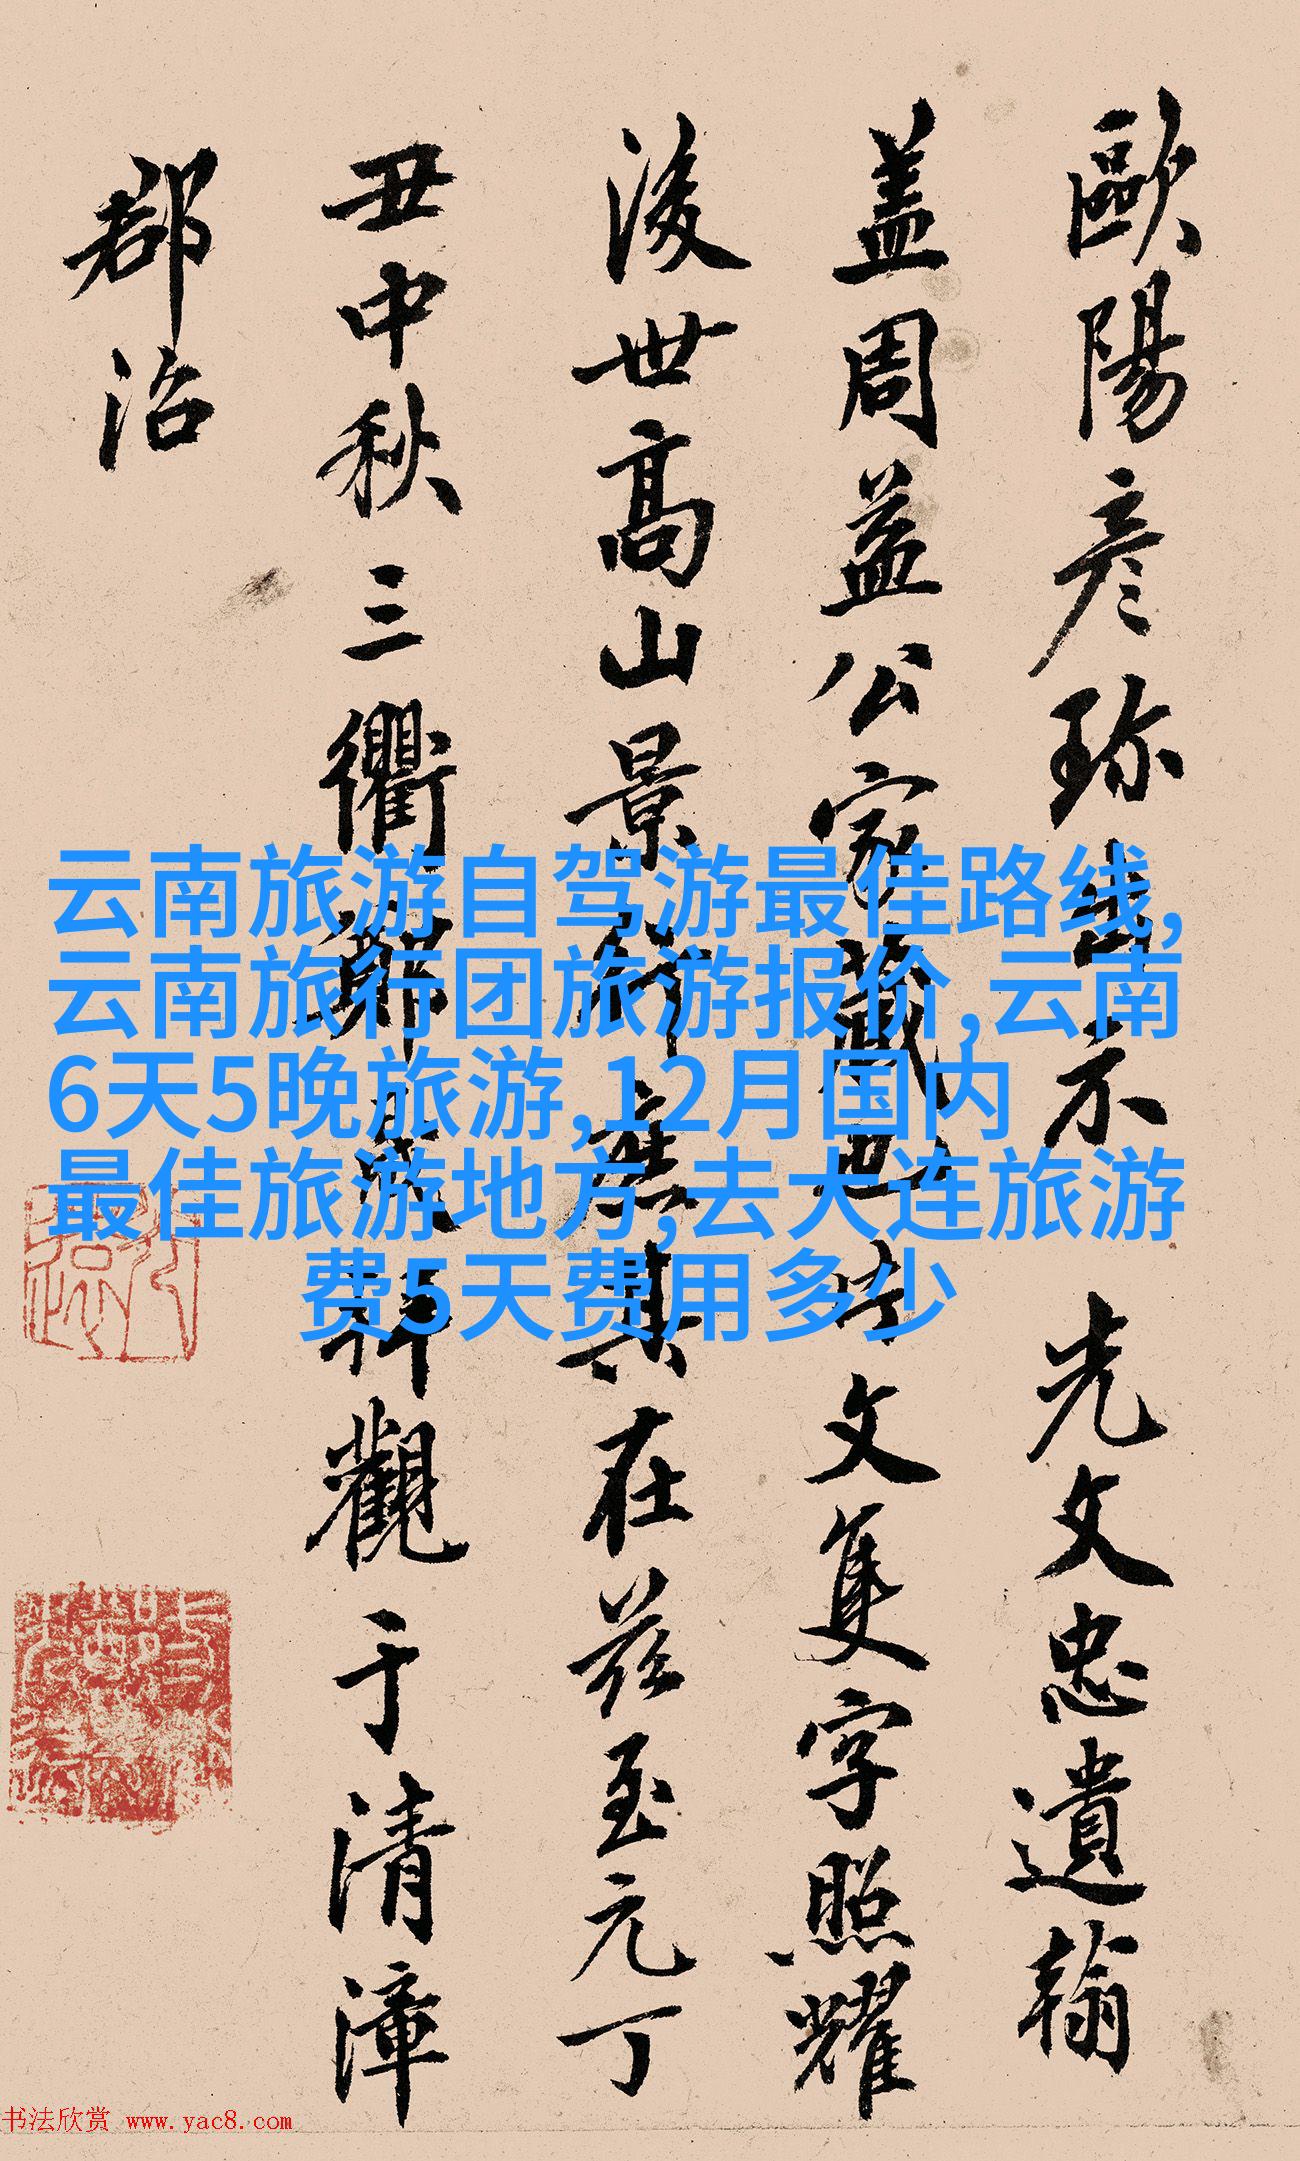 歐陽彦珎出示 先文忠遺翰
盖周益公家藏也片文隻字照耀
後世高山景行庶其在兹至元丁
丑中秋三衢鄭
觀于清漳
郡治
云南旅游自驾游最佳路线,
云南旅行团旅游报价,云南
6天5晚旅游,12月国内
最佳旅游地方,去大连旅游
费5天费用多少
书法欣赏 www.yac8.com